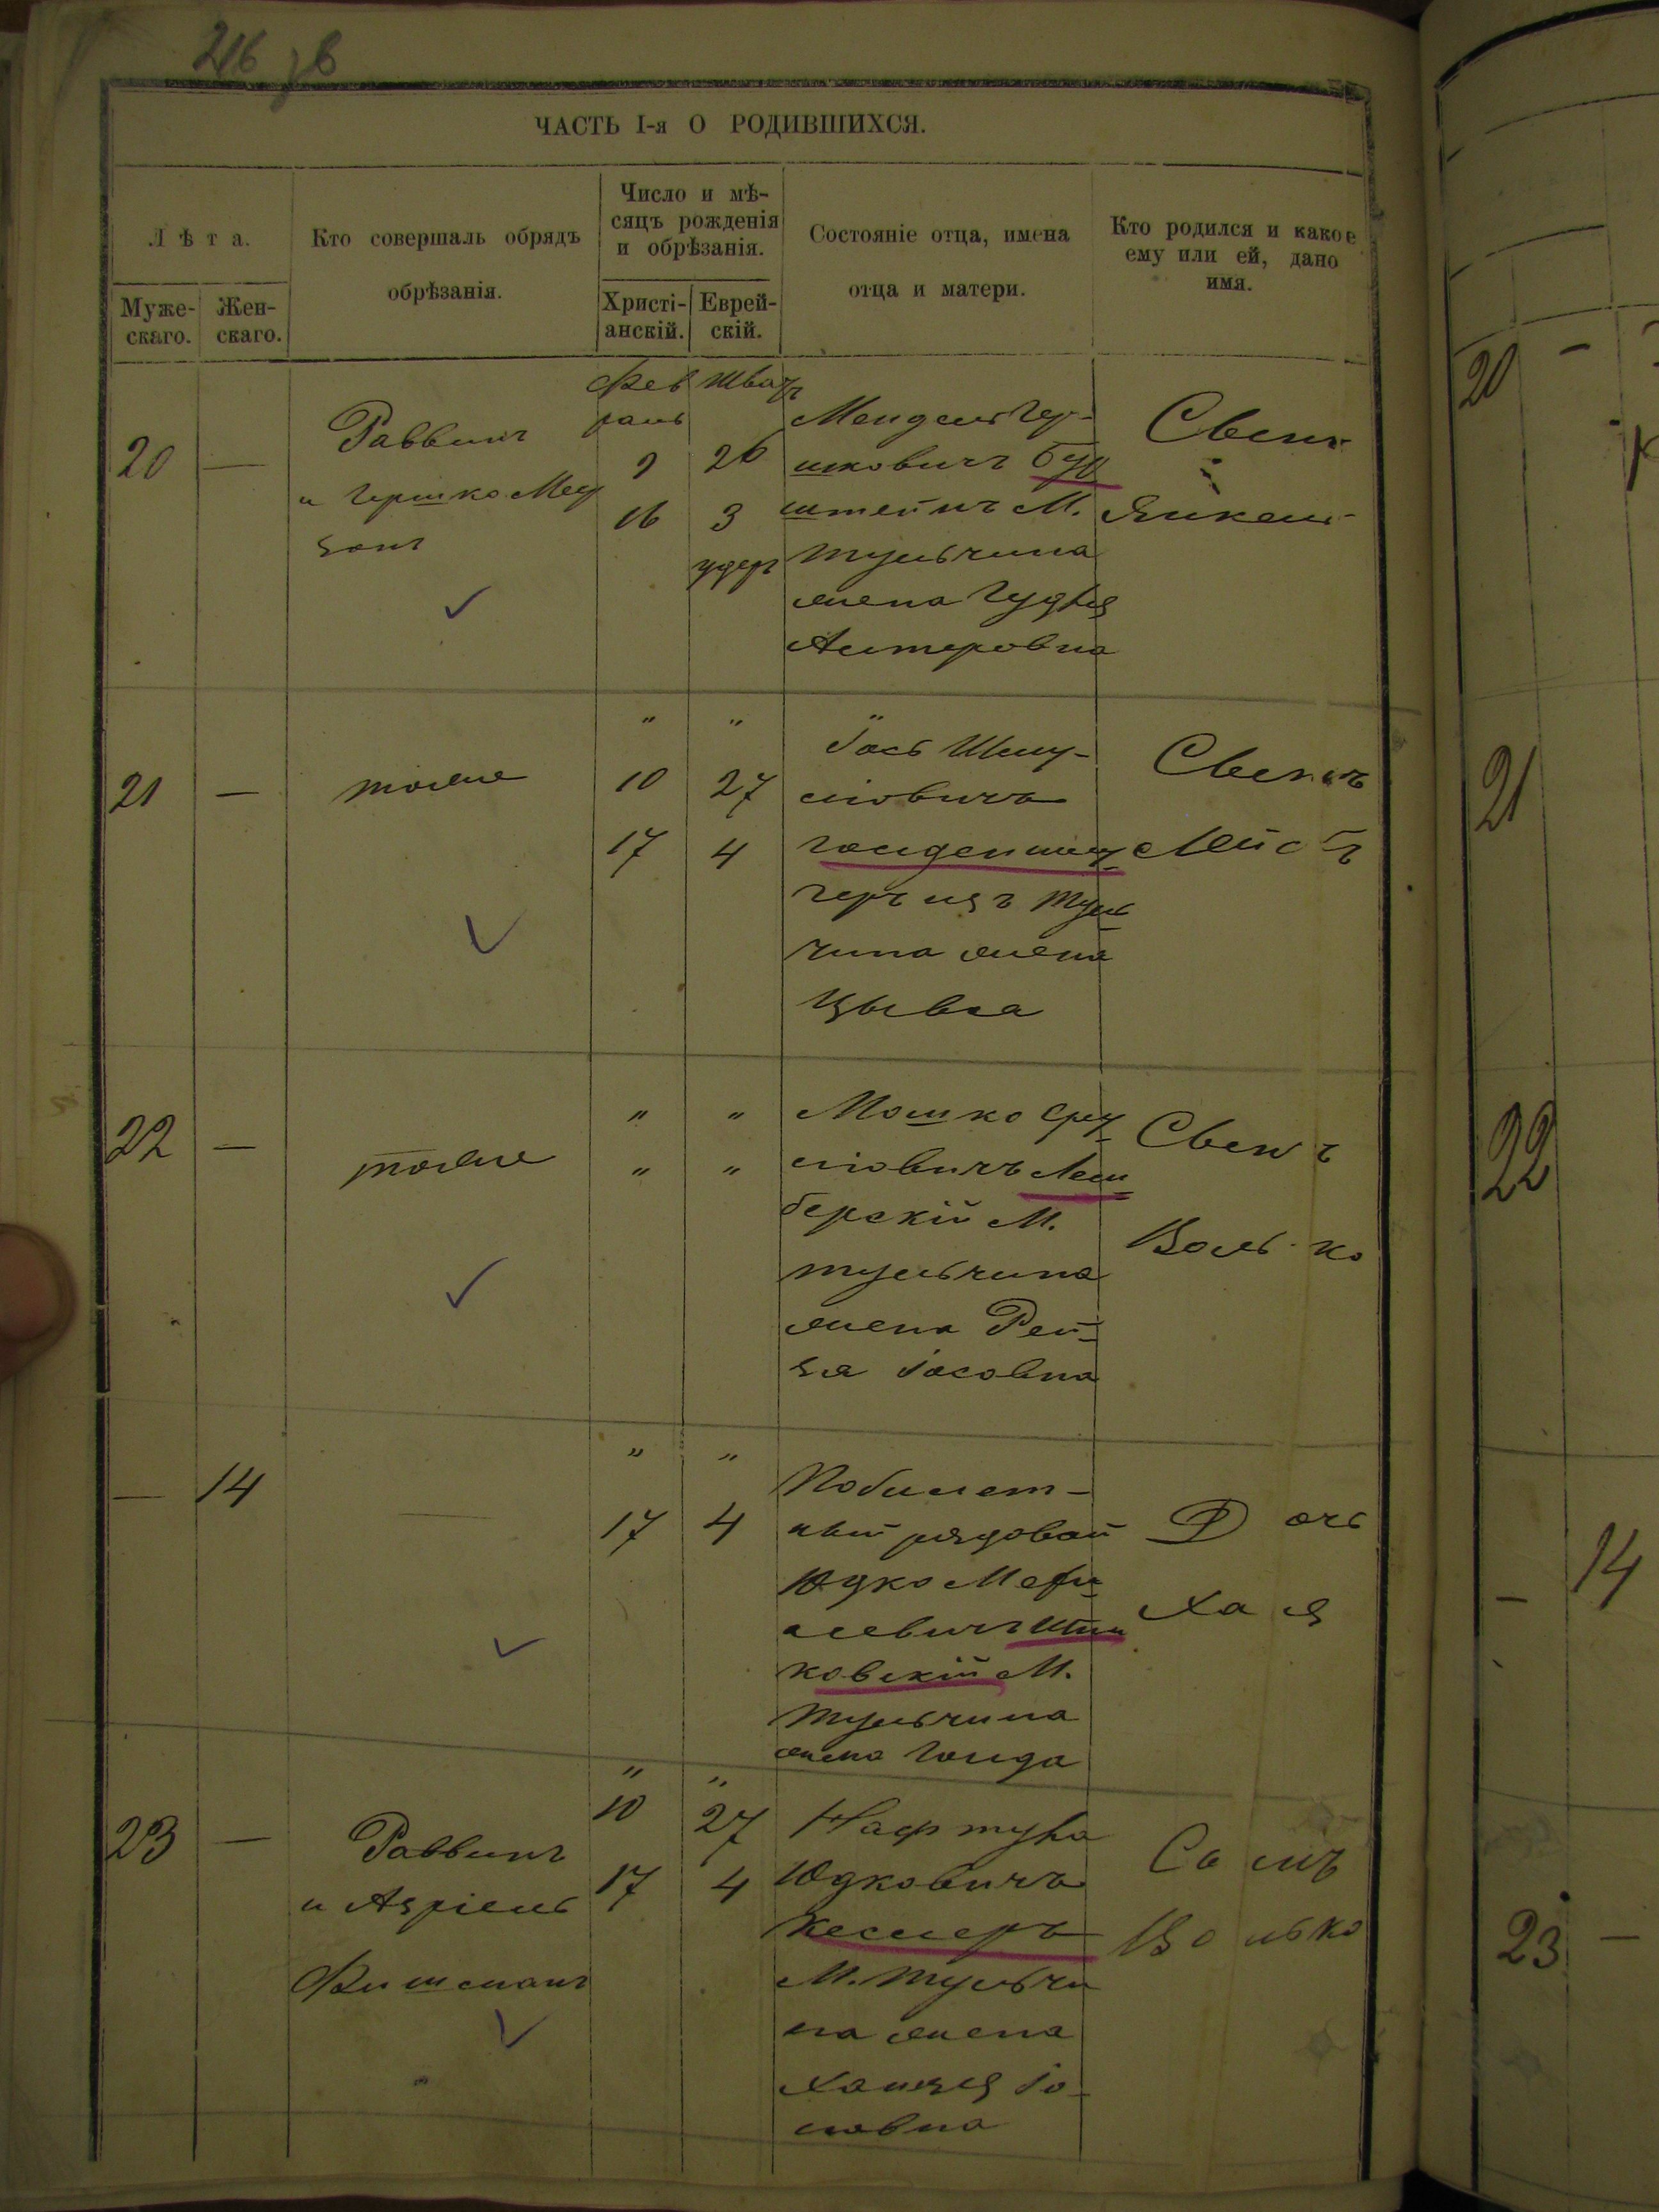 216 зв
ЧАСТЬ I-я О РОДИВШИХСЯ.
Лѣта.
Муже-
скаго.
Жен-
скаго.
Кто совершалъ обрядъ
обрѣзанія.
Число и мѣ-
сяцъ рожденія
и обрѣзанія.
Христі-
анскій.
Еврей-
скій.
Состояніе отца, имена
отца и матери.
Кто родился и какое
ему или ей, дано
имя.
20
—
Раввинъ
и Гершко
Фев
раль
9
16
Шватъ
26
3
Мендель Гер-
шковичъ
штейнъ М.
Тульчина
жена
Алтеровна
Сынъ
Янкель
21
—
тоже
"
10
17
"
27
4
Іось Шму-
ловичъ
Гольденшлу-
геръ изъ Туль
чина жена
Цывья
Сынъ
22
—
тоже
"
"
"
"
Мошко Сру-
ловичъ Лем
берскій М.
Тульчина
жена Рей-
зя Іосовна
Сынъ
Волько
—
14
—
"
17
"
4
Побилет-
ный рядовой
Юдко
ковскій М.
Тульчина
жена Голда
Дочь
Хая
23
—
Раввинъ
и Азріель
Фишманъ
"
10
17
"
27
4
Нафтула
Юдковичъ
Кеслеръ
М. Тульчи
на жена
Іо-
Сынъ
Волько
20
—
21
22
—
14
23
—